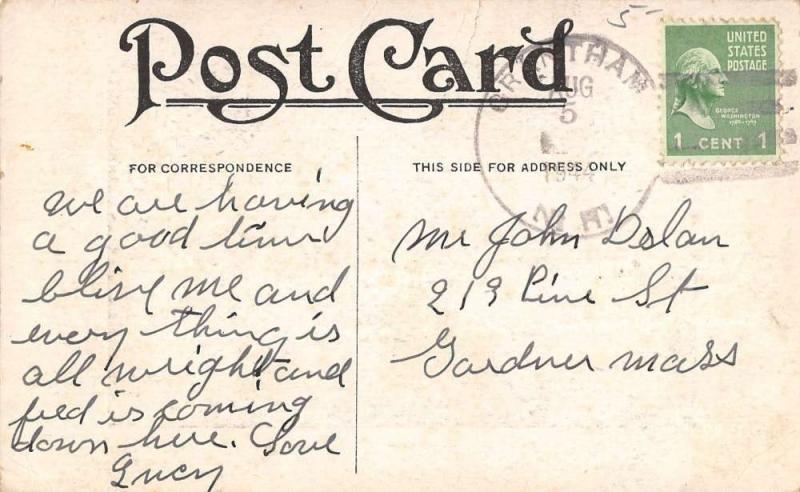 Post Card
5
UNITED
STATES
POSTAGE
GEORGE
WASHINGTON
1789-1797
1 CENT 1
GRANTHAM
AUG
5
1944
N.H.
FOR CORRESPONDENCE
THIS SIDE FOR ADDRESS ONLY
we are having
a good time
blive me and
every thing is
all wright and
fred is coming
down here. Love
Lucy
Mr John Dolan
219 Pine St
Gardner Mass